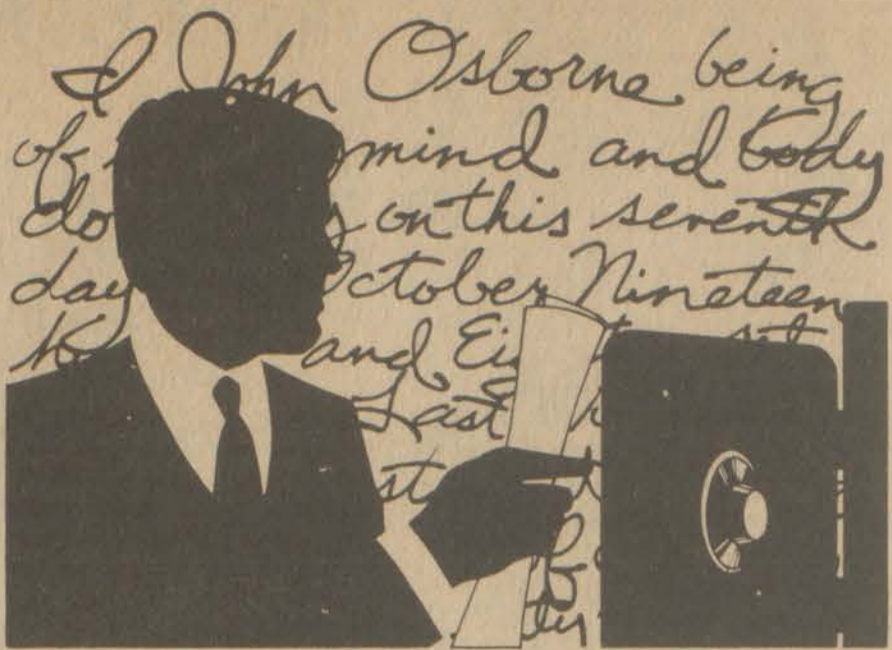 I John Osborne being
of mind and body
do on this seventh
day October Nineteen
and
Last